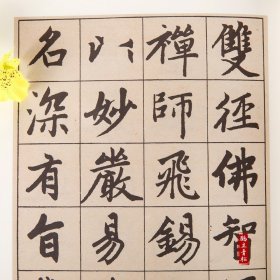 雙徑佛智
禪師飛錫
以妙嚴易
名深有旨